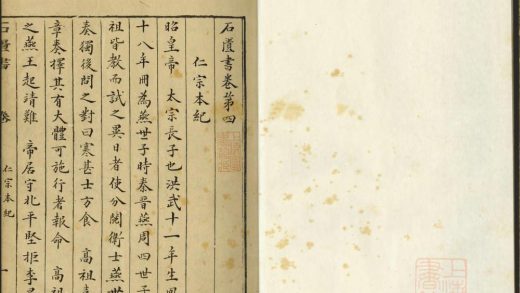 石匱書卷第四
仁宗本紀
昭皇帝 太宗長子也洪武十一年生
十八年冊為燕世子時秦晉燕周四世子
祖皆教而試之異日者使分閱衛士燕世
奏獨後問之對曰寒甚士方食 高祖喜
章奏擇其有大體可施行者報命 高祖
之燕王起靖難 帝居守北平堅拒李
石匱書 卷 仁宗本紀 一